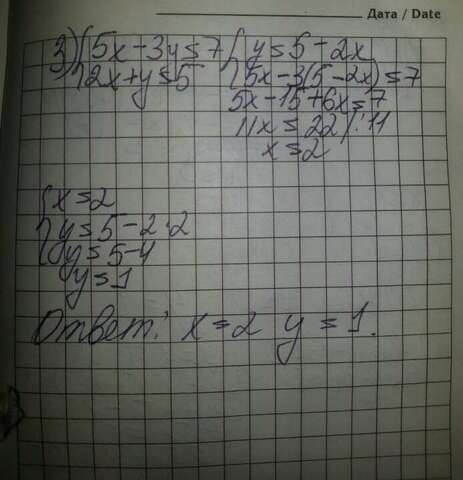 Дата / Date
3) { 5x - 3y = 7 { y = 5 - 2x
2x + y = 5 5x - 3(5 - 2x) = 7
5x - 15 + 6x = 7
11x = 22 /: 11
x = 2
{ x = 2
y = 5 - 2·2
y = 5 - 4
y = 1
Ответ: x = 2 y = 1.